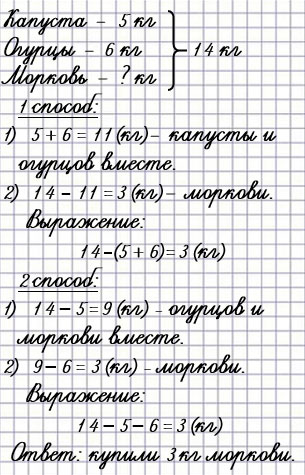 Капуста – 5 кг
Огурцы – 6 кг } 14 кг
Морковь – ? кг
1 способ:
1) 5 + 6 = 11 (кг) – капусты и
огурцов вместе.
2) 14 – 11 = 3 (кг) – моркови.
Выражение:
14 – (5 + 6) = 3 (кг)
2 способ:
1) 14 – 5 = 9 (кг) – огурцов и
моркови вместе.
2) 9 – 6 = 3 (кг) – моркови.
Выражение:
14 – 5 – 6 = 3 (кг)
Ответ: купили 3 кг моркови.